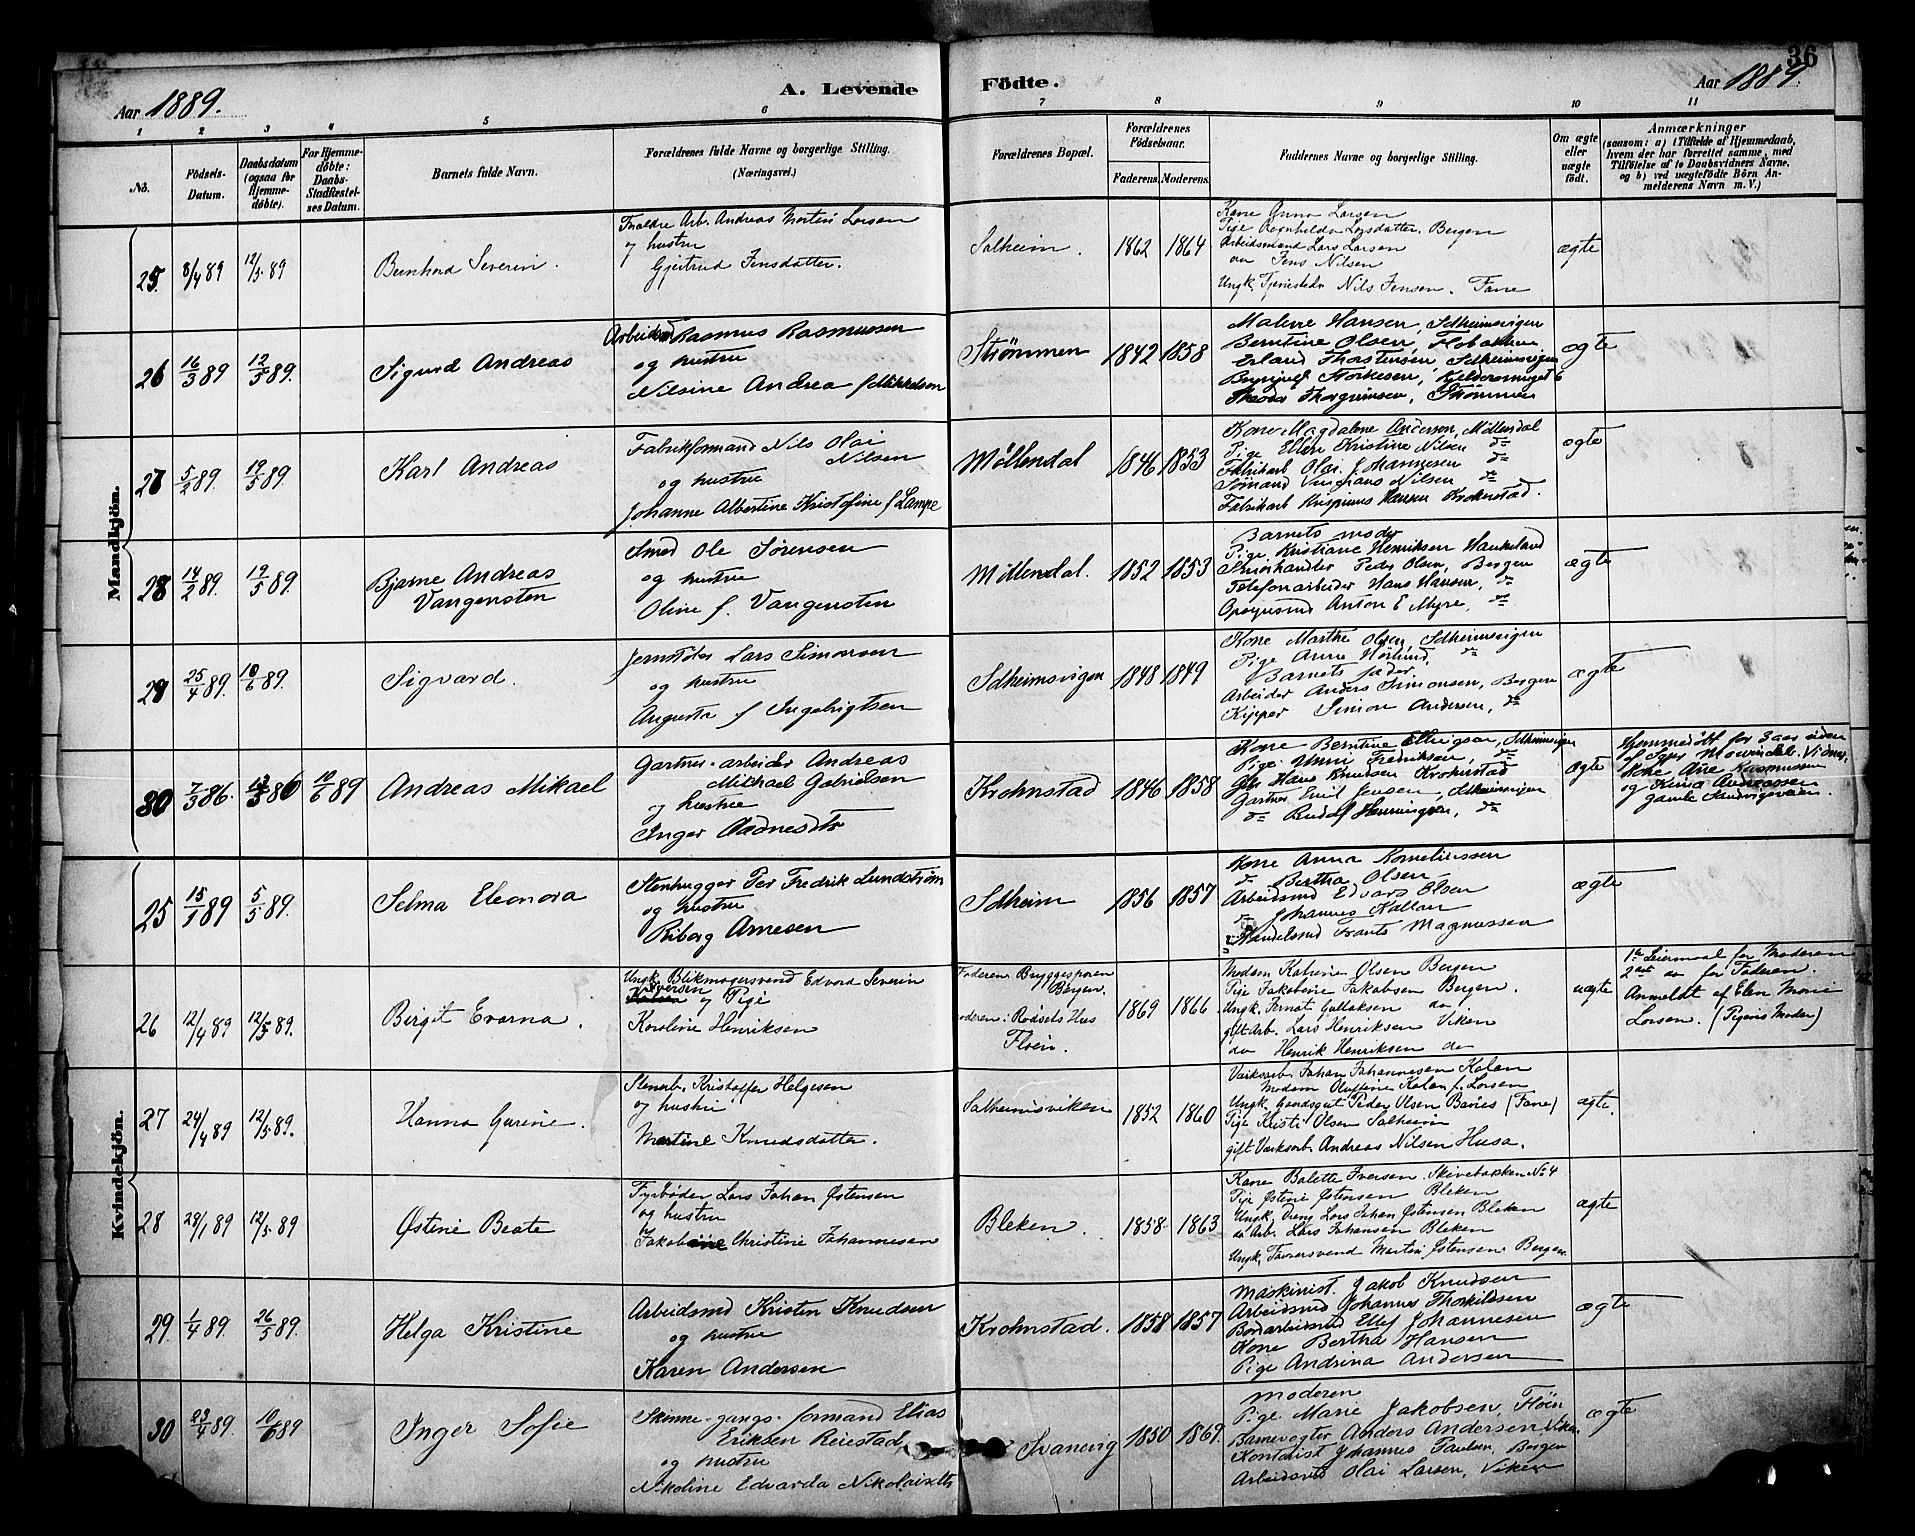 36
Aar 1889.
A. Levende Födte.
Aar 1889.
1 2 3 4 5 6 7 8 9 10 11
No.
Födsels-Datum.
Daabsdatum (ogsaa for Hjemme-döbte).
For Hjemme-döbte: Daabs-Stadfæstel-ses Datum.
Barnets fulde Navn.
Forældrenes fulde Navne og borgerlige Stilling. (Næringsvei.)
Forældrenes Bopæl.
Forældrenes Födselsaar.
Faderens. Moderens.
Faddernes Navne og borgerlige Stilling.
Om ægte eller uægte födt.
Anmærkninger
(saasom: a) i Tilfælde af Hjemmedaab, hvem der har forrettet samme, med Tilföielse af to Daabsvidners Navne, og b) ved uægtefödte Börn Anmelderens Navn m. V.)
Mandkjön.
25. 8/4 89 12/5 89
Bernhard Severin.
Arb. Andreas Martin Larsen
og hustru
Gjertrud Jensdatter.
Solheim. 1862 1864
Kone Anna Larsen
Pige Ragnhilda Larsdatter. Bergen
Arbeidsmand Lars Larsen
do Jens Nilsen
Ungk. Nils Jensen. Fane
ægte
26 16/3 89 12/5 89.
Sigurd Andreas
Arbeidsmd Rasmus Rasmussen
og hustru
Nilsine Andrea f Mikkelsen
Strømmen 1842 1858
Malene Hansen, Solheimsvigen
Berntine Olsen,
Erland Thorstensen, Solheimsvigen
Thorgrimsen, Strømmen
ægte
27 5/2 89. 19/5 89.
Karl Andreas
Fabrikformand Nils Olai
Nilsen
og hustru
Johanne Albertine Kristofine f Lampe
Møllendal 1846 1853
Kone Magdalene Anderson, Møllendal
Pige Ellen Kristine Nilsen do
Fabrikarb Olai Johannesen do
Sømand Nilsen do
Fabrikarb Krispinus Hansen Krohnstad.
ægte
28 14/2 89. 19/5 89.
Bjarne Andreas
Vangensten
Smed Ole Sørensen
og hustru
Oline f. Vangensten
Møllendal. 1852 1853
Barnets moder
Pige Kristiane Henriksen Haukeland
Peder Olsen, Bergen
Telefonarbeider Hans Hansen, do
Anton E Myre, do
ægte
29 25/4 89. 10/6 89.
Sigvard.
Lars Simonsen
og hustru
Augusta f Ingebrigtsen
Solheimsvigen 1848 1849
Kone Marthe Olsen, Solheimsvigen
Pige Anne do
Barnets fader.
Arbeider Anders Simonsen, Bergen
Kipper Simon Andersen, do
ægte
30 7/3 86. 80 10/6 89
Andreas Mikael
Gartner-arbeider Andreas
Mikhael Gabrielsen
og hustru
Inger Aadnesdtr
Krohnstad 1846 1858
Kone Berntine Ellingsen, Solheimsvigen
Pige Unni Fredriksen, do
Hans Knudsen Krohnstad
Gartner Emil Jensen, Solheimsvigen
do Rudolf Henningsen, do
ægte
Hjemmedøbt for 3 aar siden
af Vidner:
Kone Ane Rasmussen
og Andreassen
gamle Sandvigsveien.
Kvindekjön.
25 15/1 89 5/5 89.
Selma Eleonora
Stenhugger Per Fredrik Lundstrøm
og hustru
Riborg Arnesen
Solheim 1856 1857
Kone Anna Korneliussen
do Bertha Olsen
Arbeidsmd Edvard Olsen
do Johannes
Handelsmd Frants Magnussen
ægte
26 12/4 89 12/5 89.
Birgit Evarna.
Ungk. Blikmagersvend Edvard Severin
Iversen
og Pige
Karoline Henriksen
Faderen: Bryggesporen
Bergen.
Moderen: Rødsets Hus
Fløen.
1869 1866
Madam Katrine Olsen Bergen
Pige Jakobine Jakobsen Bergen.
Ungk. do
gift Arb. Lars Henriksen Viken
do Henrik Henriksen do
uægte
1ste Leiermaal for Moderen
2det do for Faderen.
Anmeldt af Elen Marie
Larsen. (Pigens Moder)
27 24/4 89 12/5 89.
Hanna Gurine.
Stenarb. Kristoffer Helgesen
og hustru
Martine Knudsdatter.
Solheimsviken 1852 1860
Værksarb. Johan Johannesen Kalan
Madam Oluffine Kalan f. Larsen
Ungk. Gaardsgut Peder Olsen (Fane)
Pige Kristi Olsen Solheim
gift Værksarb. Andreas Nilsen Husa.
ægte.
28 28/1 89 12/5 89
Østine Beate
Fyrbøder Lars Johan Østensen
og hustru
Jakobine Christine Johannesen
Bleken. 1858 1863
Kone Balette Iversen. Skivebakken No 4
Pige Østine Østensen Bleken
Ungk. Dreng Lars Johan Østensen Bleken
do Arb. Lars Johansen Bleken
Ungk. Martin Østensen. Bergen
ægte
29. 1/4 89. 26/5 89.
Helga Kristine
Arbeidsmd Kristen Knudsen
og hustru
Karen Andersen
Krohnstad. 1858 1857
Maskinist. Jakob Knudsen
Arbeidsmd Johannes Thorkildsen
Bordarbeidsmd Ellef Johannesen
Kone Bertha Hansen
Pige Andrina Andersen
ægte
30 23/4 89. 10/6 89
Inger Sofie
Skinne-gangs-formand Elias
Eriksen Reiestad
og hustru
Nikoline Edvarda Nikolaisdtr
Svanevig 1850 1869.
Moderen
Pige Marie Jakobsen, Fløen
Banevogter Anders Andersen Viken
Kontorist Johannes Paulsen, Bergen
Arbeidsmd Olai Larsen, Viken
ægte